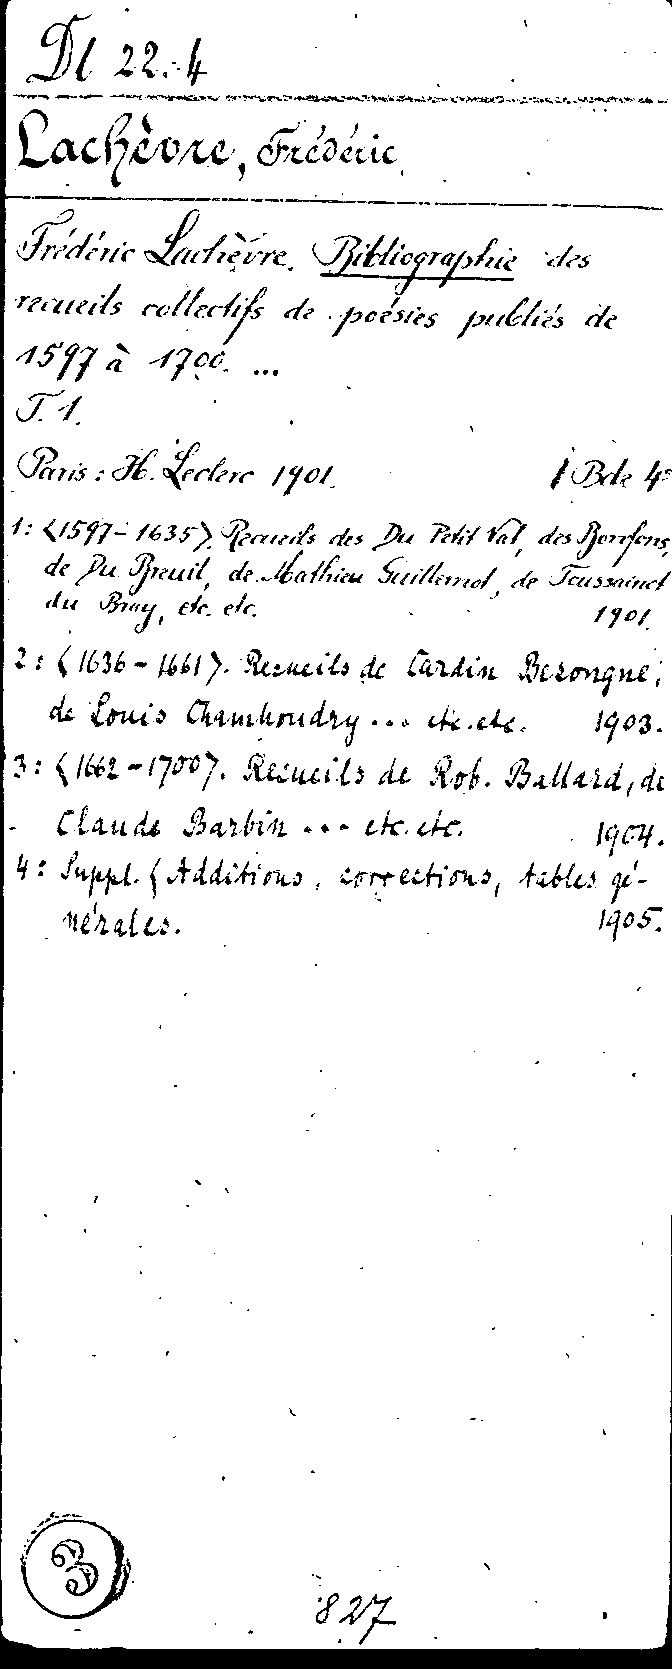 Dl 22.4
Lachèvre, Frédéric
Frédéric Lachèvre. Bibliographie des
recueils collectifs de poésies publiés de
1597 à 1700. ...
T. 1.
Paris: H. Leclerc 1901. Bde 4°
1: <1597-1635>. Recueils des Du Petit Val, des Bonfons,
de Du Breuil, de Mathieu Guillemot, de Toussainct
du Bray, etc. etc. 1901.
2: <1636-1661>. Recueils de Cardin Besongne,
de Louis Chamhoudry ... etc. etc. 1903.
3: <1662-1700>. Recueils de Rob. Ballard, de
Claude Barbin ... etc. etc. 1904.
4: Suppl. <Additions, corrections, tables gé-
nérales. 1905.
3
827